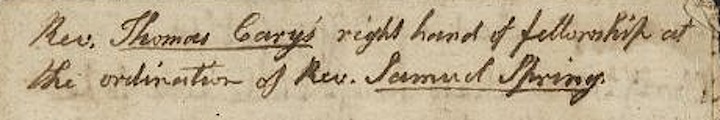 Rev. Thomas Cary's right hand of fellowship at
the ordination of Rev. Samuel Spring.